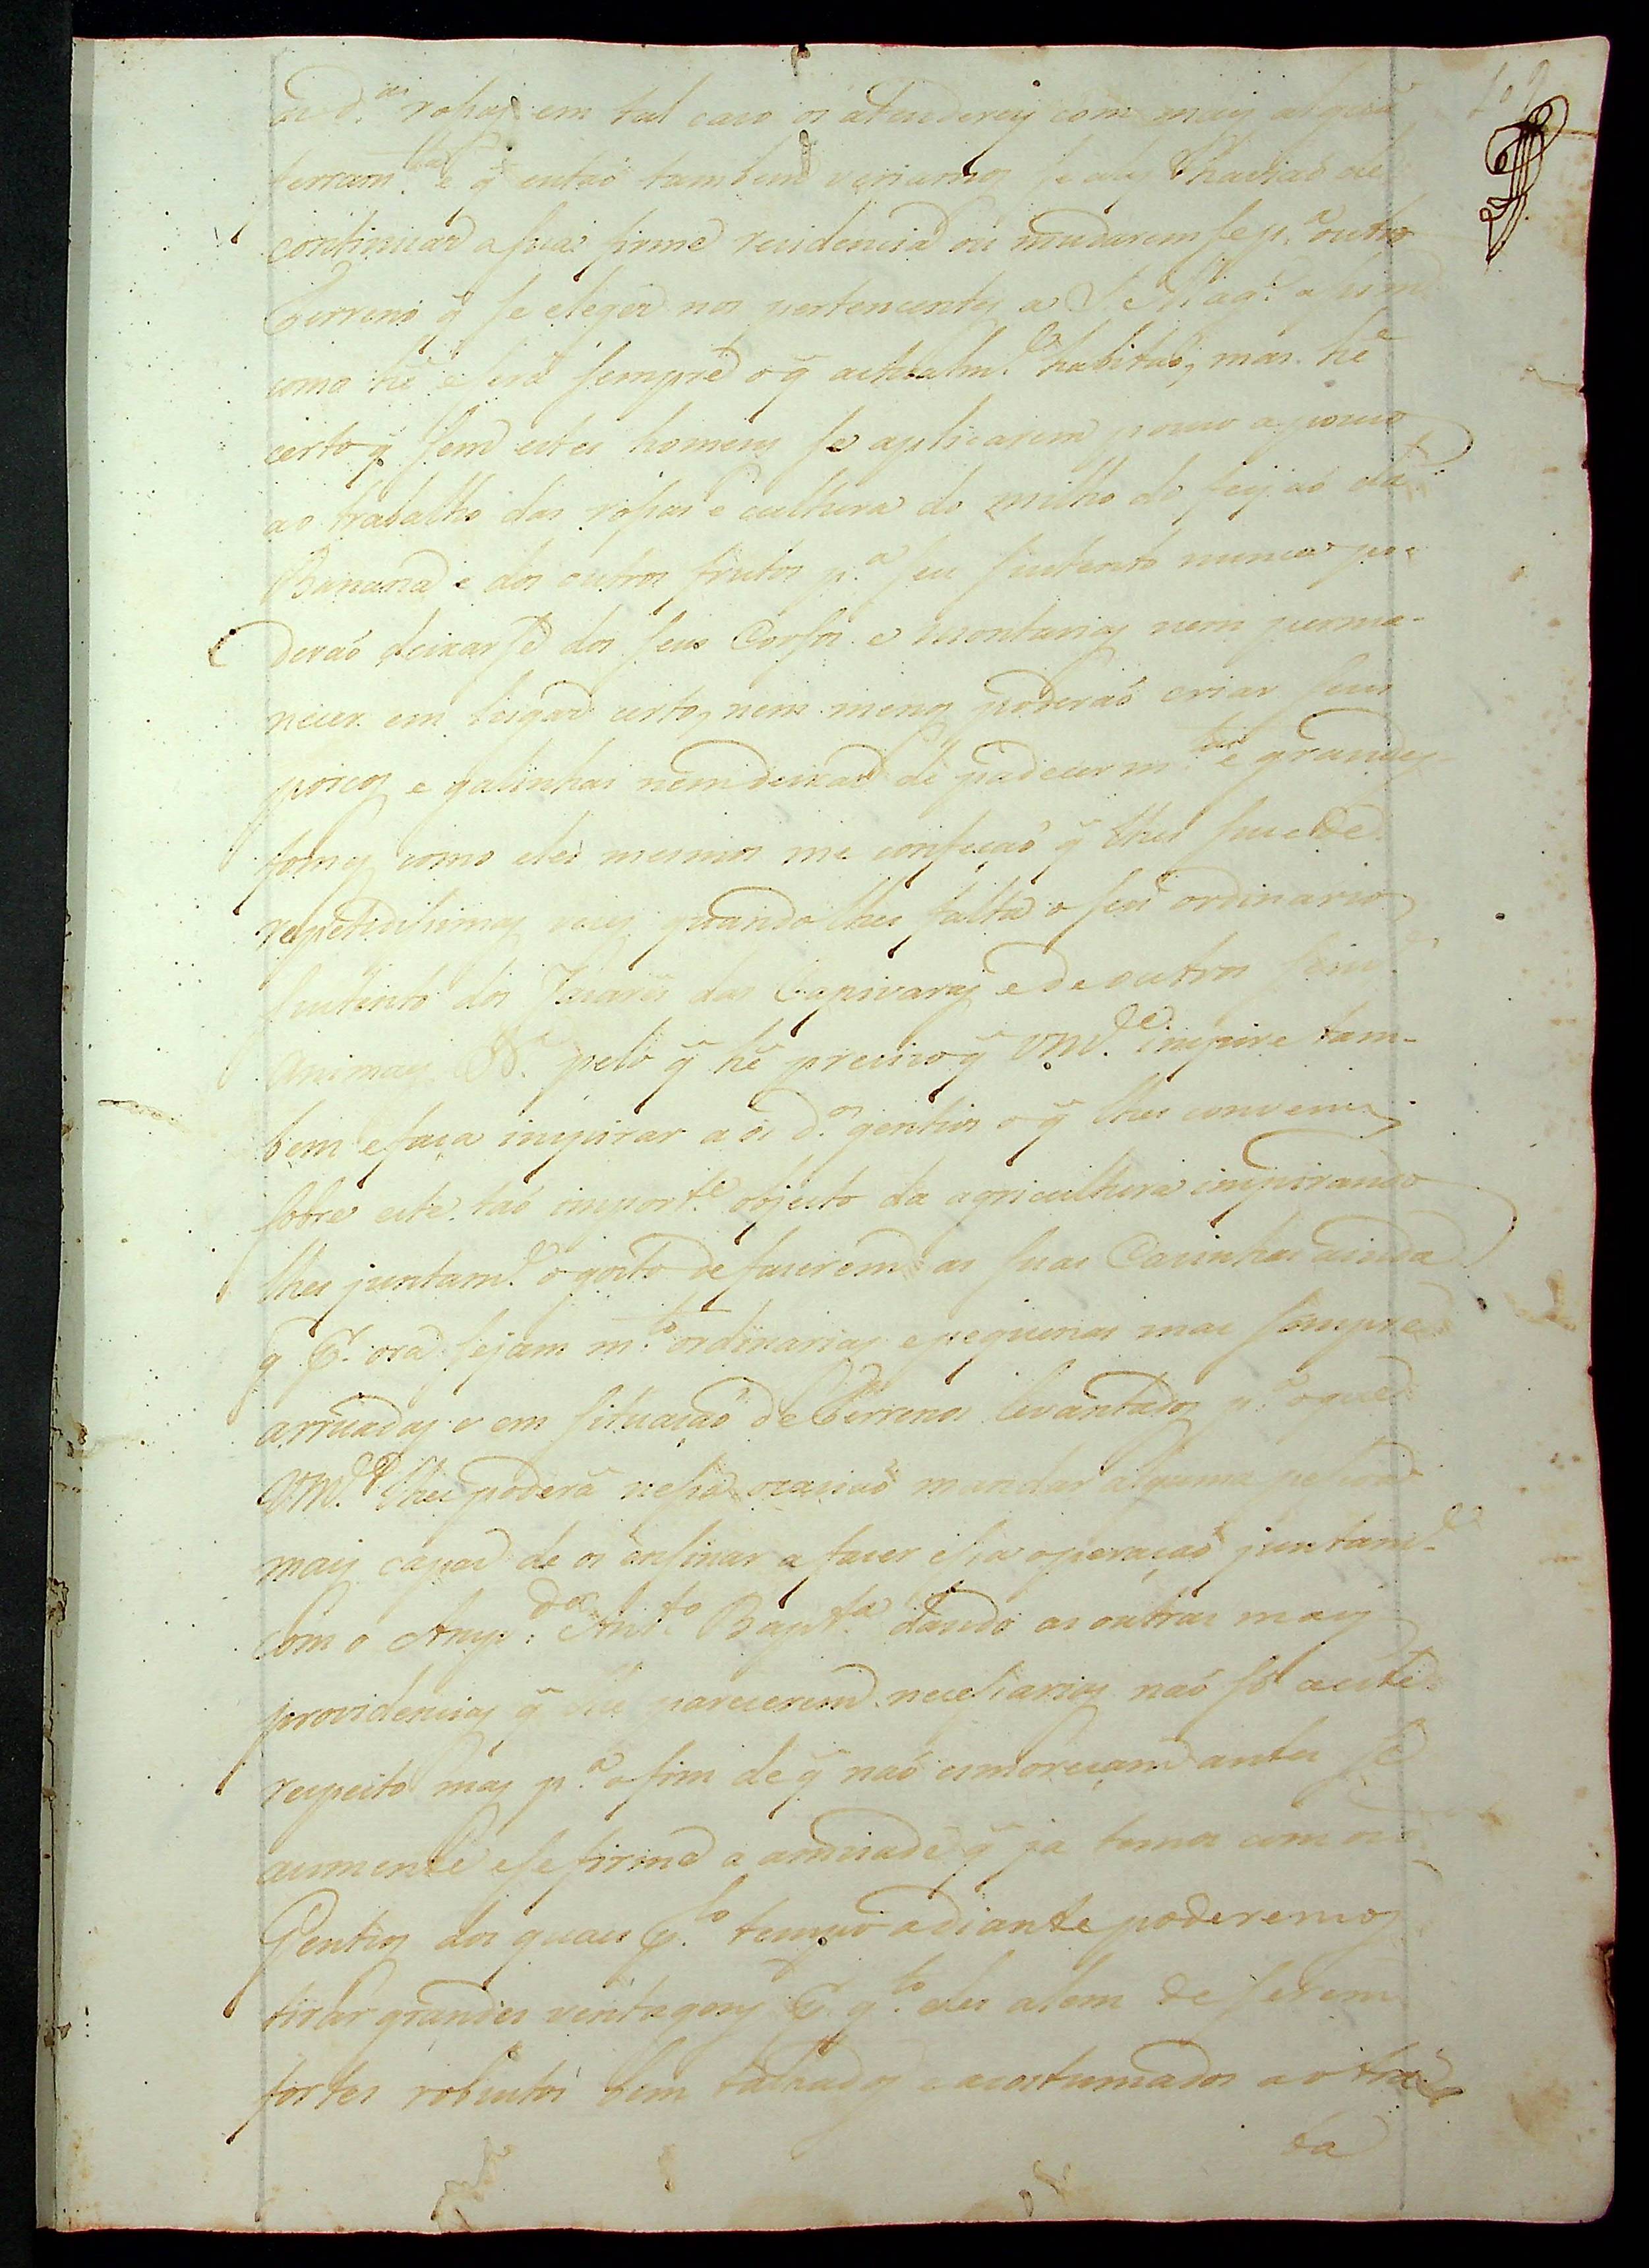 109
d.as rossas em tal cazo os atenderey com mais alguã
ferram.ta e q̃ entaõ tambem veriamos se eles haviaõ de
continuar a sua firme rezidencia ou mudarem se p.a outro
terreno q̃ se eleger nos pertencentes a S. Mag.e
como hé e será sempre o q̃ actualm.e habitaõ, mas hé
certo q̃ sem estes homens se aplicarem pouco a pouco
ao trabalho das rossas e cultura do milho do feijaõ da
Banana e dos outros frutos p.a seu sustento nunca po-
deraõ deixarse dos seus Corsos e montarias nem perma-
necer em lugar certo, nem menos poderaõ criar seus
porcos e galinhas nem deixar de padecer m.tas e grandes
fomes como eles mesmos me confessaõ q̃ lhes sucede
repetidissimas vezes quando lhes falta o seu ordinario
sustento dos Jacarés das Capivaras e de outros sem.es
animaes &.a pelo q̃ hé precizo q̃ VM.ce inspire tam-
bem e faça inspirar a os d.os gentios o q̃ lhes convem
sobre este taõ import.e objecto da agricultura inspirando
lhes juntam.e o gosto de fazerem as suas Cazinhas ainda
q̃ P. ora sejam m.to ordinarias e pequenas mas sempre
arruadas e em situaçaõ de terrenos levantados p.a o que
VM.ce lhes poderá nessa ocaziaõ mandar alguma pessoa
mais capaz de os ensinar a fazer essa operaçaõ juntam.e
com o Ansp.da Ant.o Bapt.a dando as outras mais
providencias q̃ lhe parecerem necessarias naõ só a este
respeito mas p.a o fim de q̃ naõ esmoreçam antes se
aumente e se firme a amizade q̃ ja temos com os
Gentios dos quaes P.lo tempo adiante poderemos
tirar grandes ventagens P. q.to eles alem de serem
fortes robustos bem talhados e acostumados ao tra-
ba